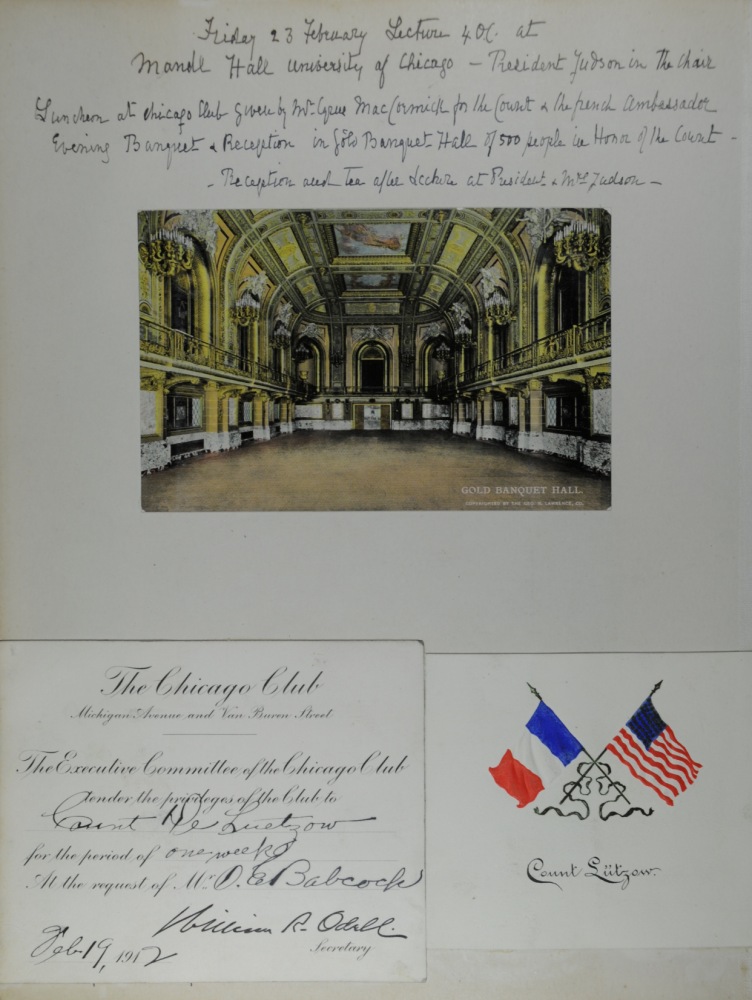 Friday 23 February Lecture 4 o'c. at
Mandl Hall University of Chicago – President Judson in the Chair
Luncheon at Chicago Club given by Mr Cyrus MacCormick for the Count & the french Ambassador
Evening Banquet & Reception in Gold Banquet Hall of 500 people in Honor of the Count –
– Reception and Tea after Lecture at President & Mrs Judson –
GOLD BANQUET HALL.
COPYRIGHTED BY THE GEO. R. LAWRENCE, CO.
The Chicago Club
Michigan Avenue and Van Buren Street
The Executive Committee of the Chicago Club
tender the privileges of the Club to
Count De Luetzow
for the period of one week
At the request of Mr. O. E. Babcock
William R. Odell.
Secretary
Feb. 19, 1912
Count Lützow.